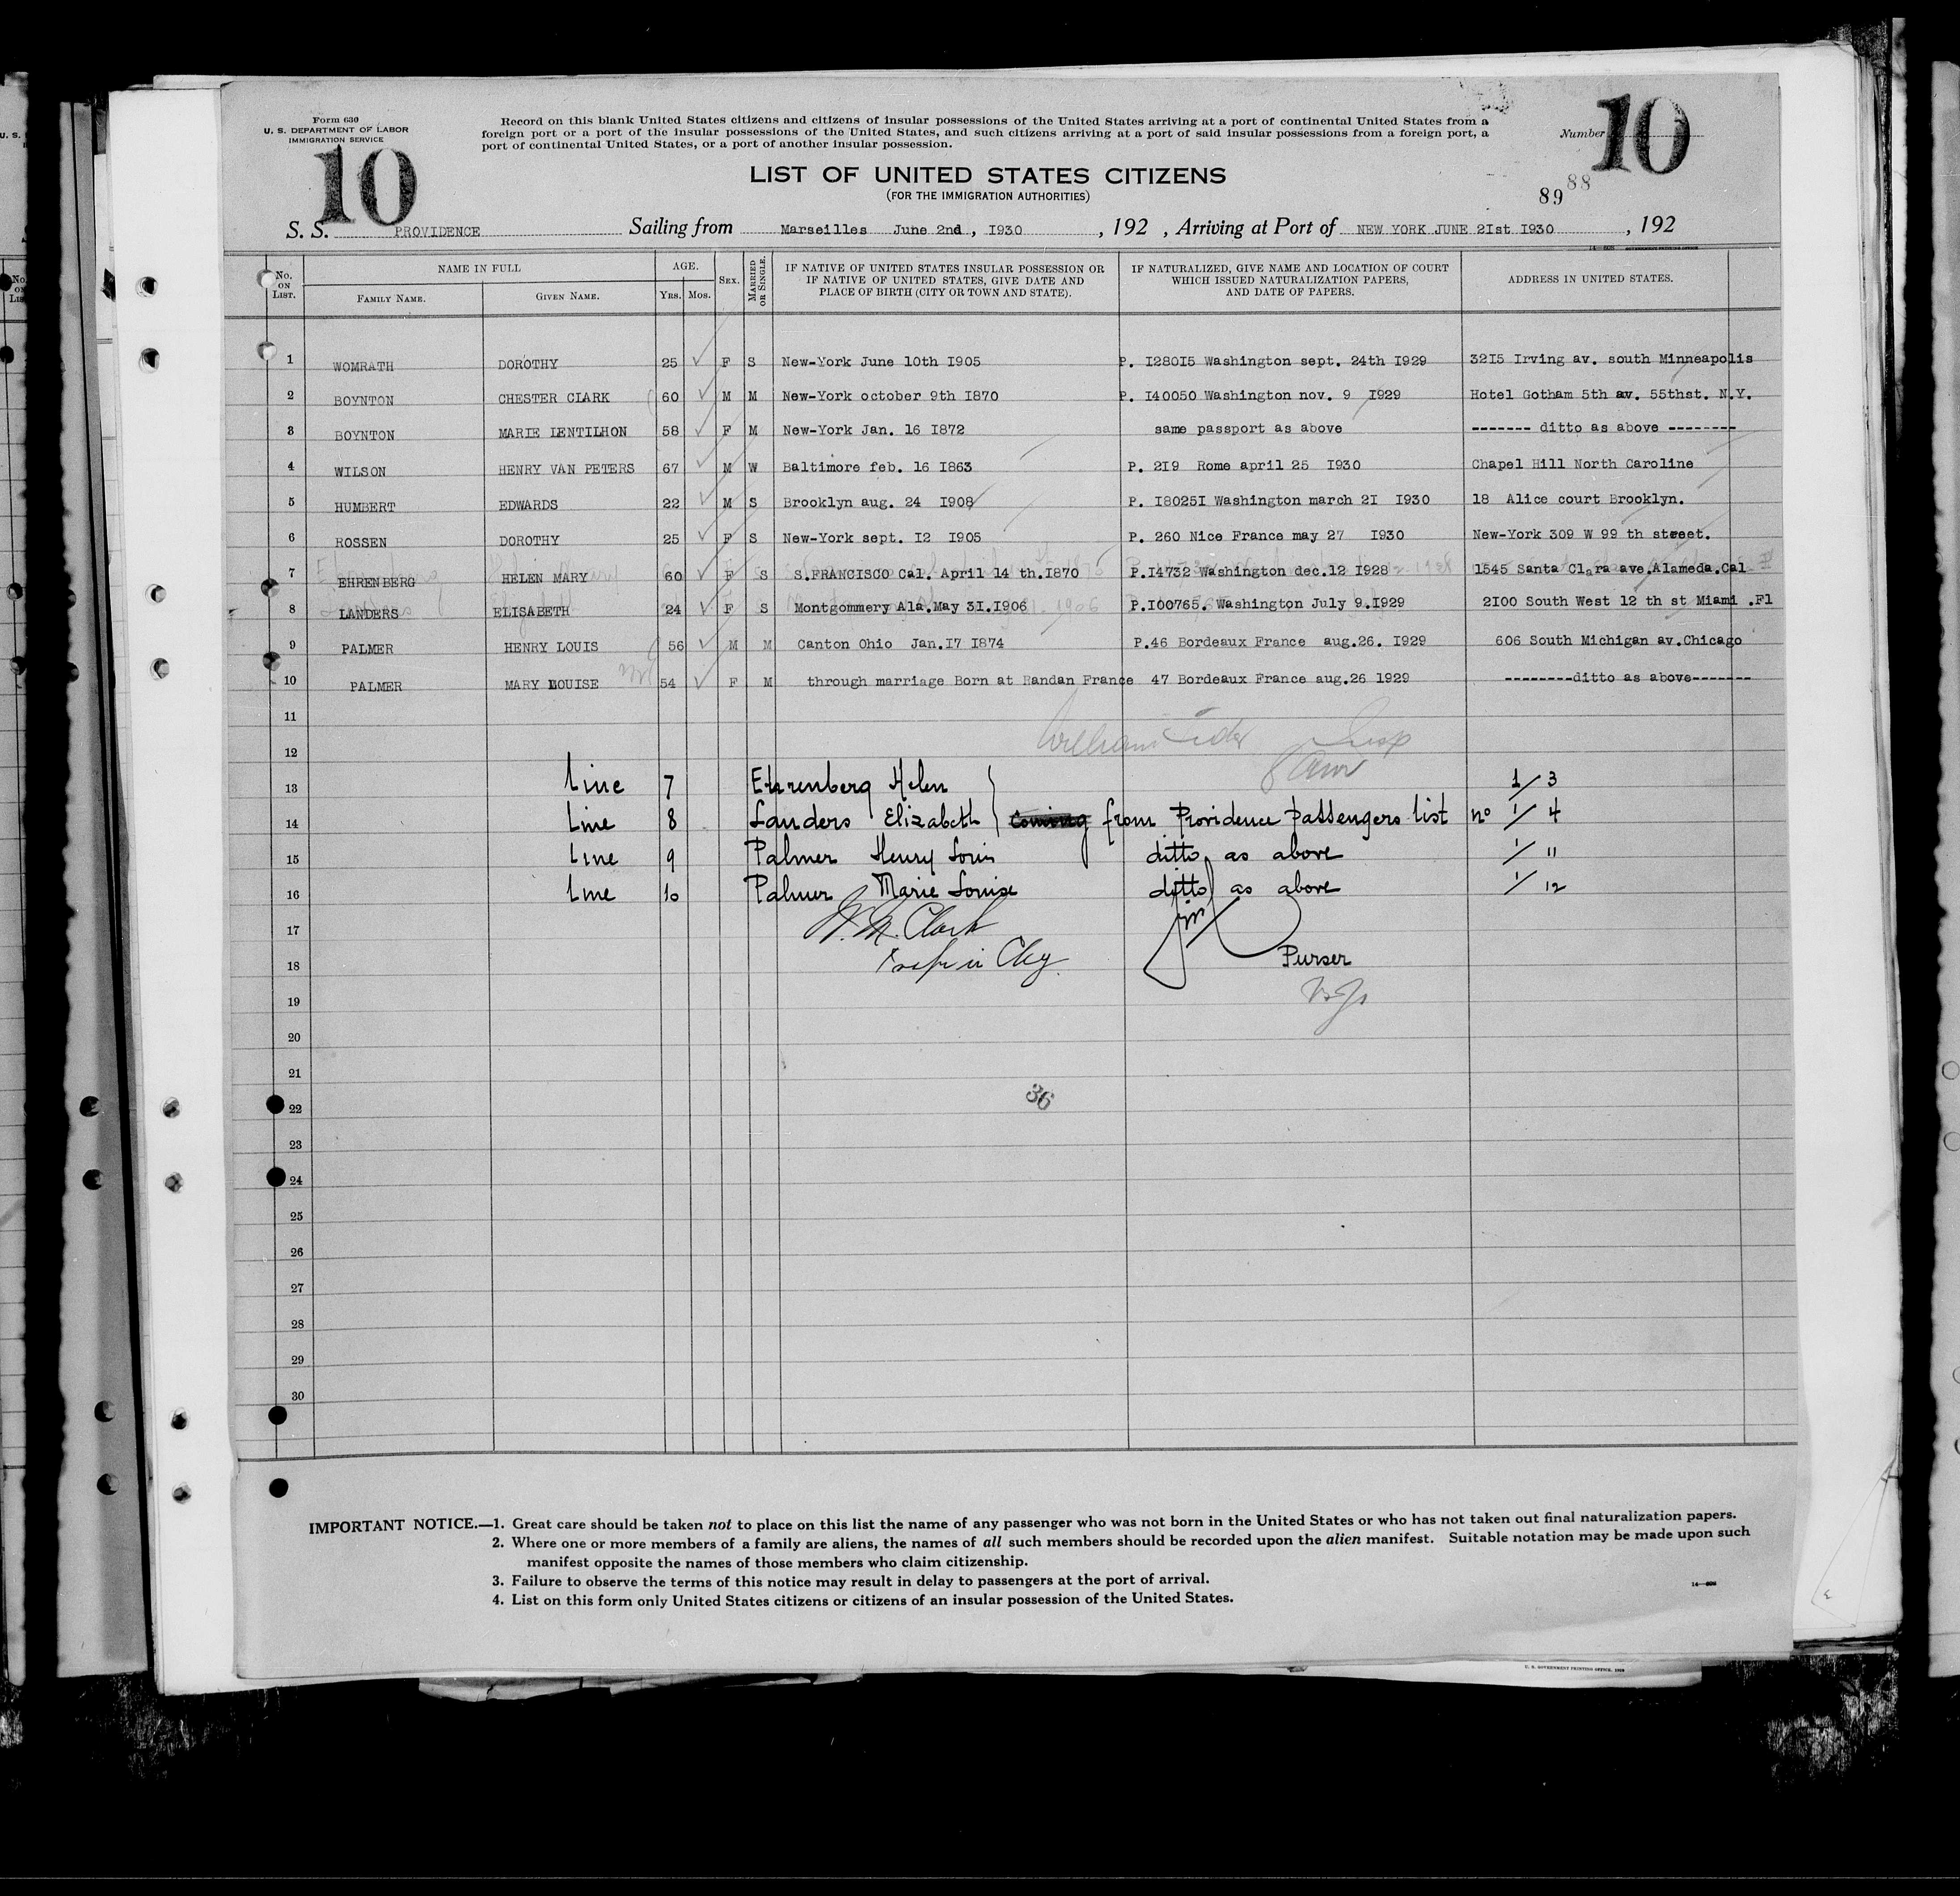 Form 630
U. S. DEPARTMENT OF LABOR
IMMIGRATION SERVICE
10
Record on this blank United States citizens and citizens of insular possessions of the United States arriving at a port of continental United States from a
foreign port or a port of the insular possessions of the United States, and such citizens arriving at a port of said insular possessions from a foreign port, a
port of continental United States, or a port of another insular possession.
Number 10
LIST OF UNITED STATES CITIZENS
(FOR THE IMMIGRATION AUTHORITIES)
89 88
S. S. PROVIDENCE Sailing from Marseilles June 2nd, I930, 192 , Arriving at Port of NEW YORK JUNE 2Ist I930, 192
No. ON LIST. NAME IN FULL FAMILY NAME. GIVEN NAME. AGE. Yrs. Mos. SEX. MARRIED OR SINGLE. IF NATIVE OF UNITED STATES INSULAR POSSESSION OR IF NATIVE OF UNITED STATES, GIVE DATE AND PLACE OF BIRTH (CITY OR TOWN AND STATE). IF NATURALIZED, GIVE NAME AND LOCATION OF COURT WHICH ISSUED NATURALIZATION PAPERS, AND DATE OF PAPERS. ADDRESS IN UNITED STATES.
1 WOMRATH DOROTHY 25 F S New-York June 10th I905 P. I280I5 Washington sept. 24th I929 32I5 Irving av. south Minneapolis
2 BOYNTON CHESTER CLARK 60 M M New-York october 9th I870 P. I40050 Washington nov. 9 I929 Hotel Gotham 5th av. 55thst. N.Y.
3 BOYNTON MARIE LENTILHON 58 F M New-York Jan. 16 I872 same passport as above ------- ditto as above --------
4 WILSON HENRY VAN PETERS 67 M W Baltimore feb. 16 I863 P. 2I9 Rome april 25 I930 Chapel Hill North Caroline
5 HUMBERT EDWARDS 22 M S Brooklyn aug. 24 I908 P. I8025I Washington march 2I I930 18 Alice court Brooklyn.
6 ROSSEN DOROTHY 25 F S New-York sept. I2 I905 P. 260 Nice France may 27 I930 New-York 309 W 99 th street.
7 EHRENBERG HELEN MARY 60 F S S.FRANCISCO Cal. April 14 th.I870 P.I4732 Washington dec.12 I928 1545 Santa Clara ave.Alameda.Cal
8 LANDERS ELISABETH 24 F S Montgommery Ala.May 3I.I906 P.I00765. Washington July 9.I929 2I00 South West 12 th st Miami .Fl
9 PALMER HENRY LOUIS 56 M M Canton Ohio Jan.I7 I874 P.46 Bordeaux France aug.26. I929 606 South Michigan av.Chicago
10 PALMER MARY LOUISE 54 F M through marriage Born at Randan France 47 Bordeaux France aug.26 1929 --------ditto as above-------
11
12
13 Line 7 Ehrenberg Helen 1/3
14 Line 8 Landers Elizabeth coming from Providence passengers list no 1/4
15 Line 9 Palmer Henry Louis ditto as above 1/11
16 Line 10 Palmer Marie Louise ditto as above 1/12
17 Clark
18 Purser
19
20
21
22 36
23
24
25
26
27
28
29
30
IMPORTANT NOTICE.—1. Great care should be taken not to place on this list the name of any passenger who was not born in the United States or who has not taken out final naturalization papers.
2. Where one or more members of a family are aliens, the names of all such members should be recorded upon the alien manifest. Suitable notation may be made upon such
manifest opposite the names of those members who claim citizenship.
3. Failure to observe the terms of this notice may result in delay to passengers at the port of arrival.
4. List on this form only United States citizens or citizens of an insular possession of the United States.